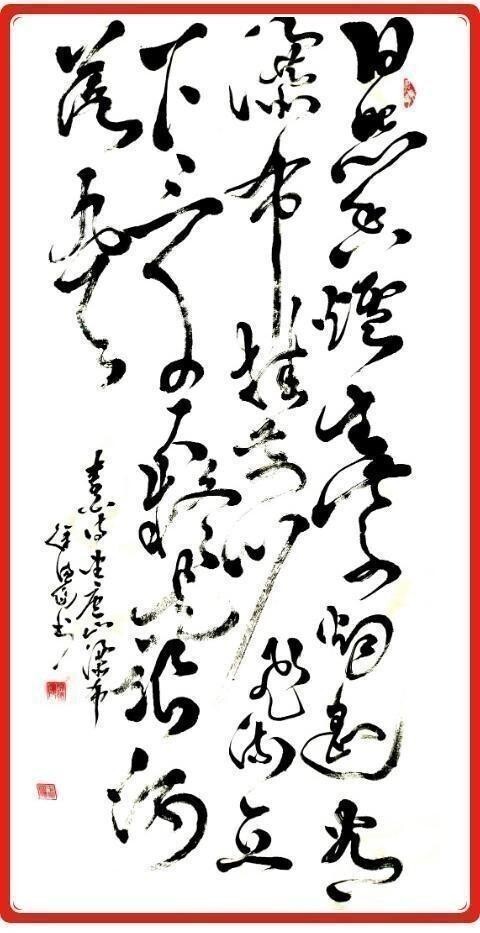 日照香爐生紫烟遥看
瀑布挂前川飛流直
下三千尺疑是銀河
落九天
李白诗望庐山瀑布